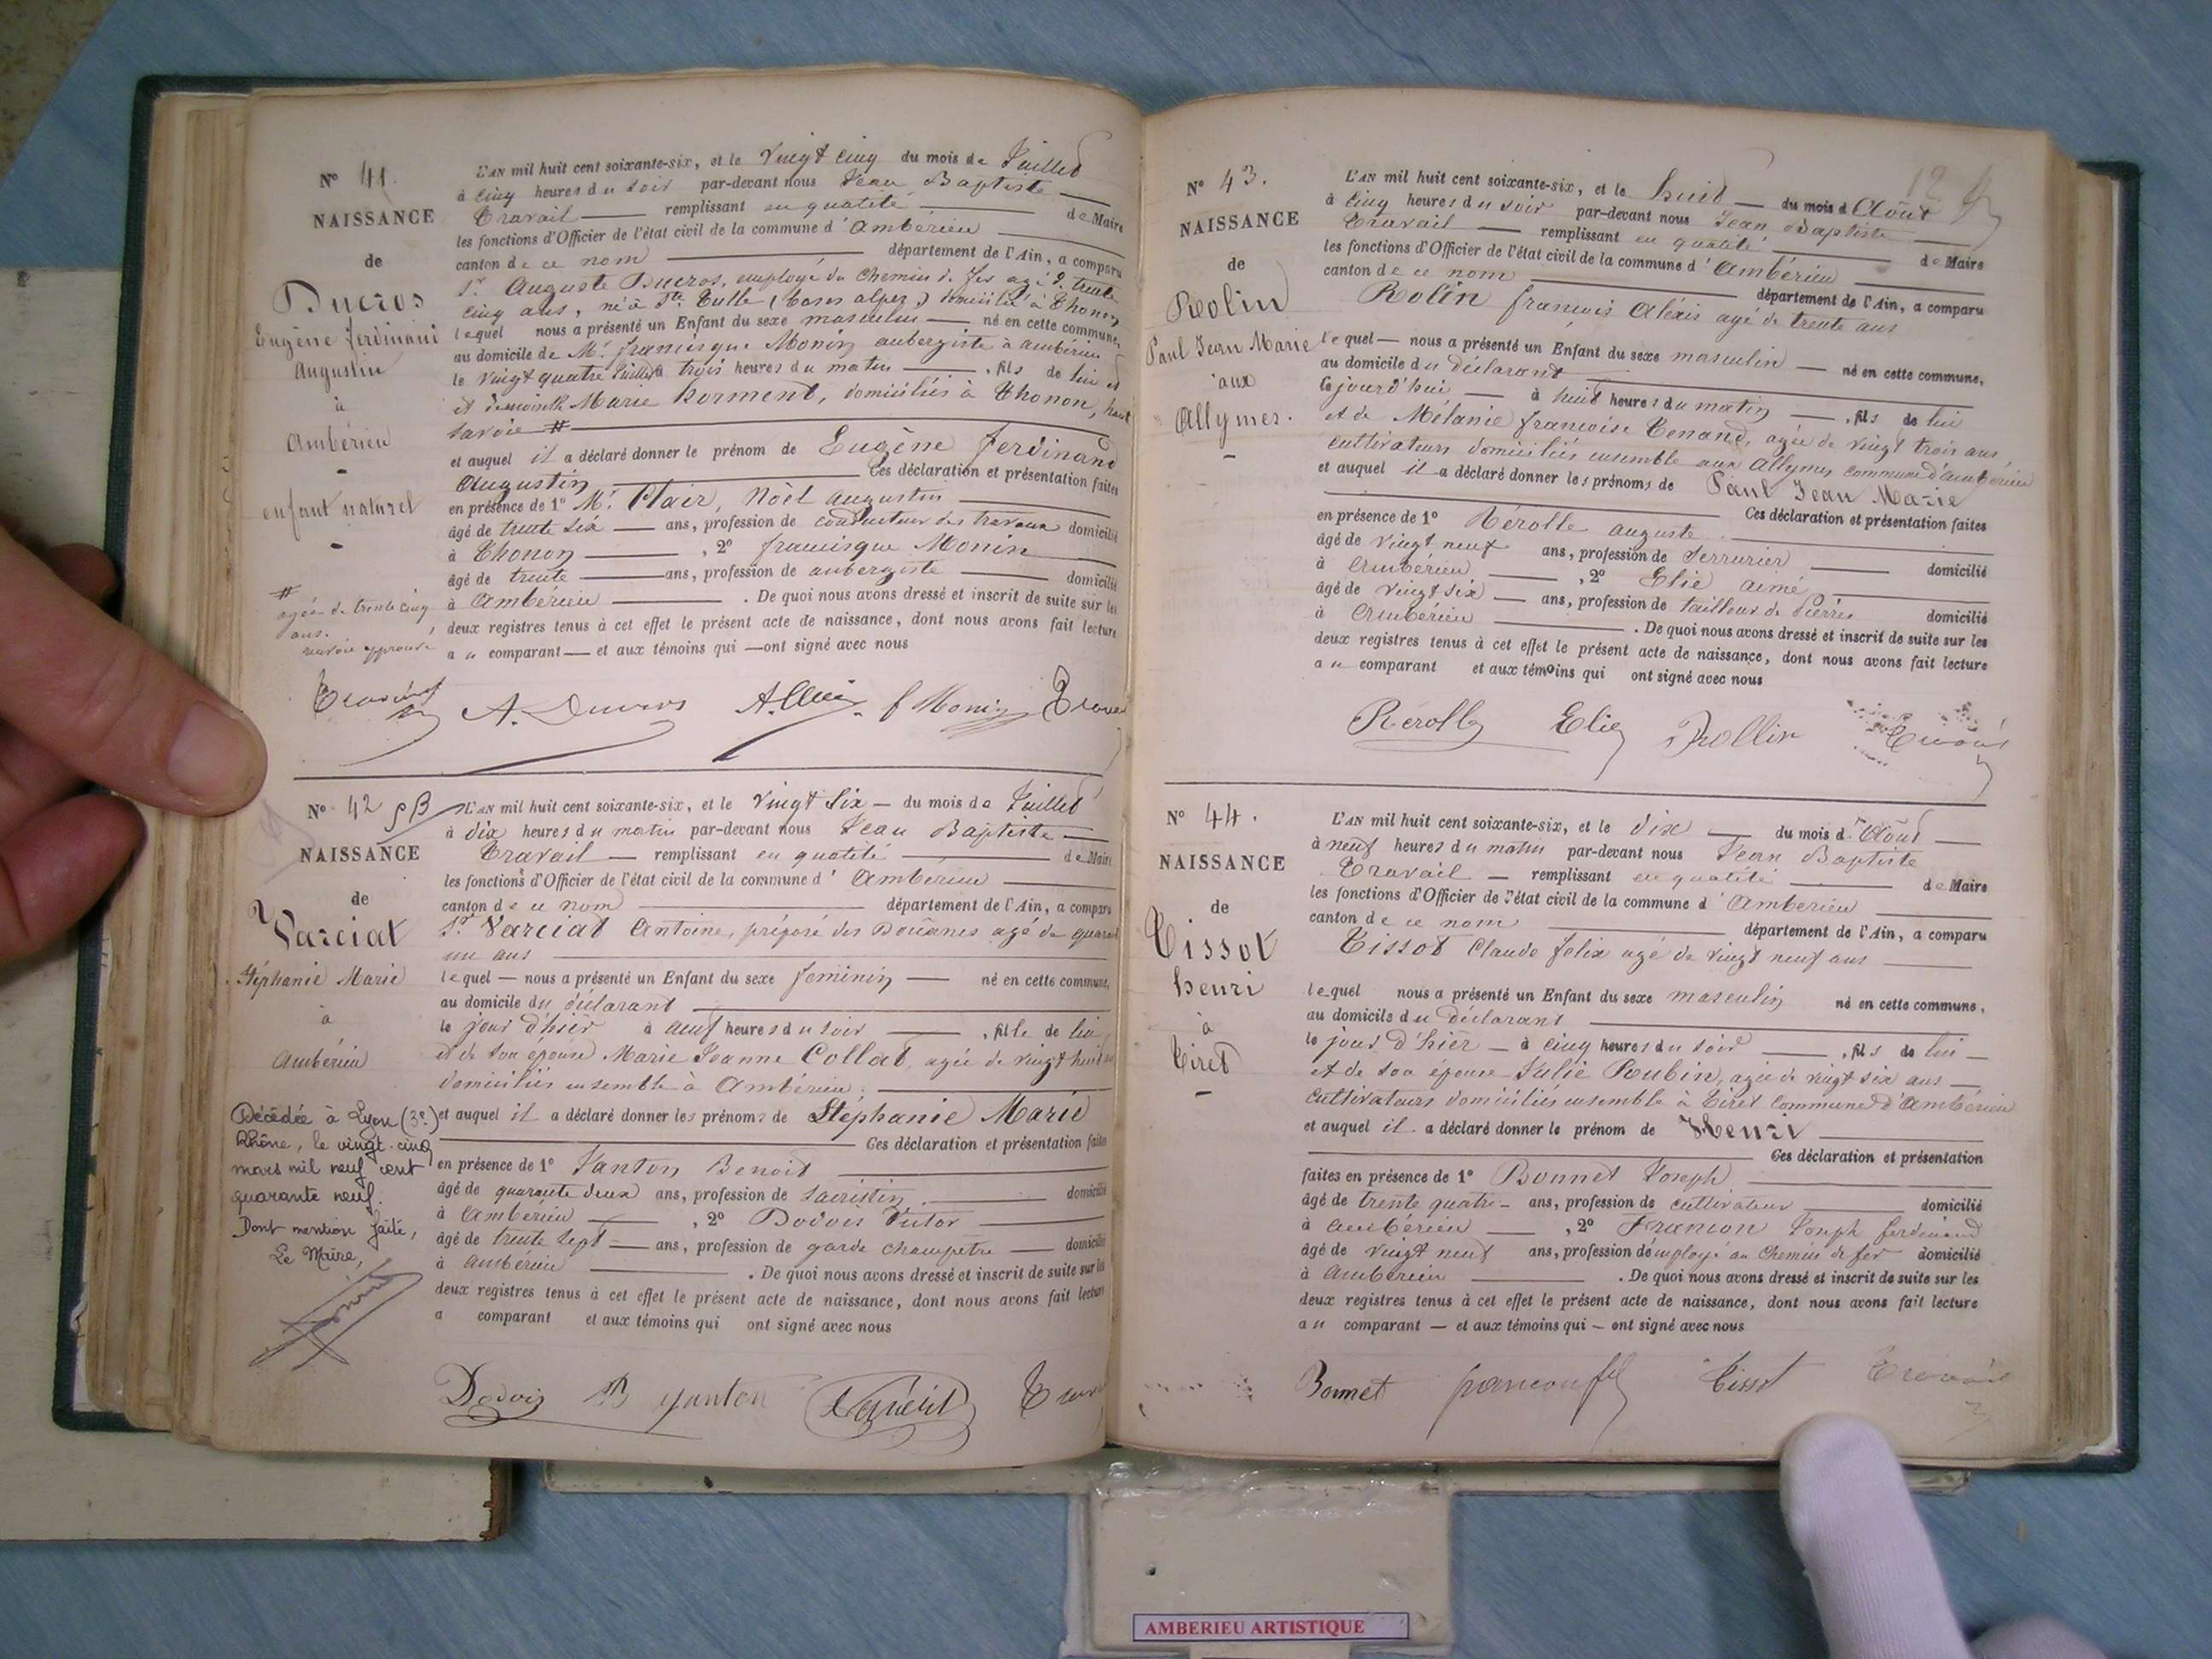 N° 41.
NAISSANCE
de
Ducros
Eugène ferdinand
Augustin
à
Ambérieu
enfant naturel
#
agée de trente cinq
ans.
renvoi approuvé
L'AN mil huit cent soixante-six, et le vingt cinq du mois de Juillet
à cinq heures du soir par-devant nous Jean Baptiste
Travail remplissant en qualité de Maire
les fonctions d'Officier de l'état civil de la commune d'Ambérieu
canton de ce nom département de l'Ain, a comparu
Sr Auguste Ducros, employé du Chemin de fer agé de trente
cinq ans, né à Ste Tulle (basses alpes) domicilié à Thonon
lequel nous a présenté un Enfant du sexe masculin né en cette commune,
au domicile de Mr. francisque Monin aubergiste à ambérieu
le vingt quatre Juillet à trois heures du matin , fils de lui et
et Marie borment, domiciliés à Thonon, haute
Savoie #
et auquel il a déclaré donner le prénom de Eugène ferdinand
Augustin Ces déclaration et présentation faites
en présence de 1° Mr. Clair, Noël Augustin
âgé de trente six ans, profession de conducteur des travaux domicilié
à Thonon , 2° francisque Monin
âgé de trente ans, profession de aubergiste domicilié
à Ambérieu . De quoi nous avons dressé et inscrit de suite sur les
deux registres tenus à cet effet le présent acte de naissance, dont nous avons fait lecture
au comparant et aux témoins qui ont signé avec nous
A. Ducros A. Clair f Monin Travail
N° 42
NAISSANCE
de
Varciat
Stéphanie Marie
à
Ambérieu
Décédée à Lyon (3e)
Rhône, le vingt-cinq
mars mil neuf cent
quarante neuf.
Dont mention faite,
Le Maire,
L'AN mil huit cent soixante-six, et le vingt six du mois de Juillet
à dix heures du matin par-devant nous Jean Baptiste
Travail remplissant en qualité de Maire
les fonctions d'Officier de l'état civil de la commune d'Ambérieu
canton de ce nom département de l'Ain, a comparu
Sr Varciat Antoine, préposé des Douanes agé de quarante
un ans
lequel nous a présenté un Enfant du sexe feminin né en cette commune,
au domicile du déclarant
le jour d'hier à neuf heures du soir , fille de lui
et de son épouse Marie Jeanne Collat, agée de vingt huit ans
domiciliés ensemble à Ambérieu.
et auquel il a déclaré donner les prénoms de Stéphanie Marie
Ces déclaration et présentation faites
en présence de 1° Janton Benoit
âgé de quarante deux ans, profession de sacristin domicilié
à Ambérieu , 2° Dodois Victor
âgé de trente sept ans, profession de garde champêtre domicilié
à Ambérieu . De quoi nous avons dressé et inscrit de suite sur les
deux registres tenus à cet effet le présent acte de naissance, dont nous avons fait lecture
a comparant et aux témoins qui ont signé avec nous
Dodois B Janton Varciat Travail
12
N° 43.
NAISSANCE
de
Rolin
Paul Jean Marie
aux
Allymes.
L'AN mil huit cent soixante-six, et le huit du mois d'Août
à cinq heures du soir par-devant nous Jean Baptiste
Travail remplissant en qualité de Maire
les fonctions d'Officier de l'état civil de la commune d'Ambérieu
canton de ce nom département de l'Ain, a comparu
Rolin françois Aléxis agé de trente ans
lequel nous a présenté un Enfant du sexe masculin né en cette commune,
au domicile du déclarant
Cejourd'hui à huit heures du matin , fils de lui
et de Mélanie françoise Tenand, agée de vingt trois ans,
cultivateurs domiciliés ensemble aux Allymes commune d'ambérieu
et auquel il a déclaré donner les prénoms de Paul Jean Marie
Ces déclaration et présentation faites
en présence de 1° Rérolle auguste
âgé de vingt neuf ans, profession de Serrurier domicilié
à Ambérieu , 2° Elie aimé
âgé de vingt six ans, profession de tailleur de Pierres domicilié
à Ambérieu . De quoi nous avons dressé et inscrit de suite sur les
deux registres tenus à cet effet le présent acte de naissance, dont nous avons fait lecture
au comparant et aux témoins qui ont signé avec nous
Rérolle Elie Rollin Travail
N° 44.
NAISSANCE
de
Tissot
henri
à
Tiret
L'AN mil huit cent soixante-six, et le dix du mois d'Août
à neuf heures du matin par-devant nous Jean Baptiste
Travail remplissant en qualité de Maire
les fonctions d'Officier de l'état civil de la commune d'Ambérieu
canton de ce nom département de l'Ain, a comparu
Tissot Claude felix agé de vingt neuf ans
lequel nous a présenté un Enfant du sexe masculin né en cette commune,
au domicile du déclarant
le jour d'hier à cinq heures du soir , fils de lui
et de son épouse Julie Rubin, agée de vingt six ans
cultivateurs domiciliés ensemble à Tiret commune d'Ambérieu
et auquel il a déclaré donner le prénom de Henri
Ces déclaration et présentation
faites en présence de 1° Bonnet Joseph
âgé de trente quatre ans, profession de cultivateur domicilié
à ambérieu , 2° Francon Joseph ferdinand
âgé de vingt neuf ans, profession de employé au Chemin de fer domicilié
à Ambérieu . De quoi nous avons dressé et inscrit de suite sur les
deux registres tenus à cet effet le présent acte de naissance, dont nous avons fait lecture
au comparant et aux témoins qui ont signé avec nous
Bonnet francon fd Tissot Travail
AMBERIEU ARTISTIQUE